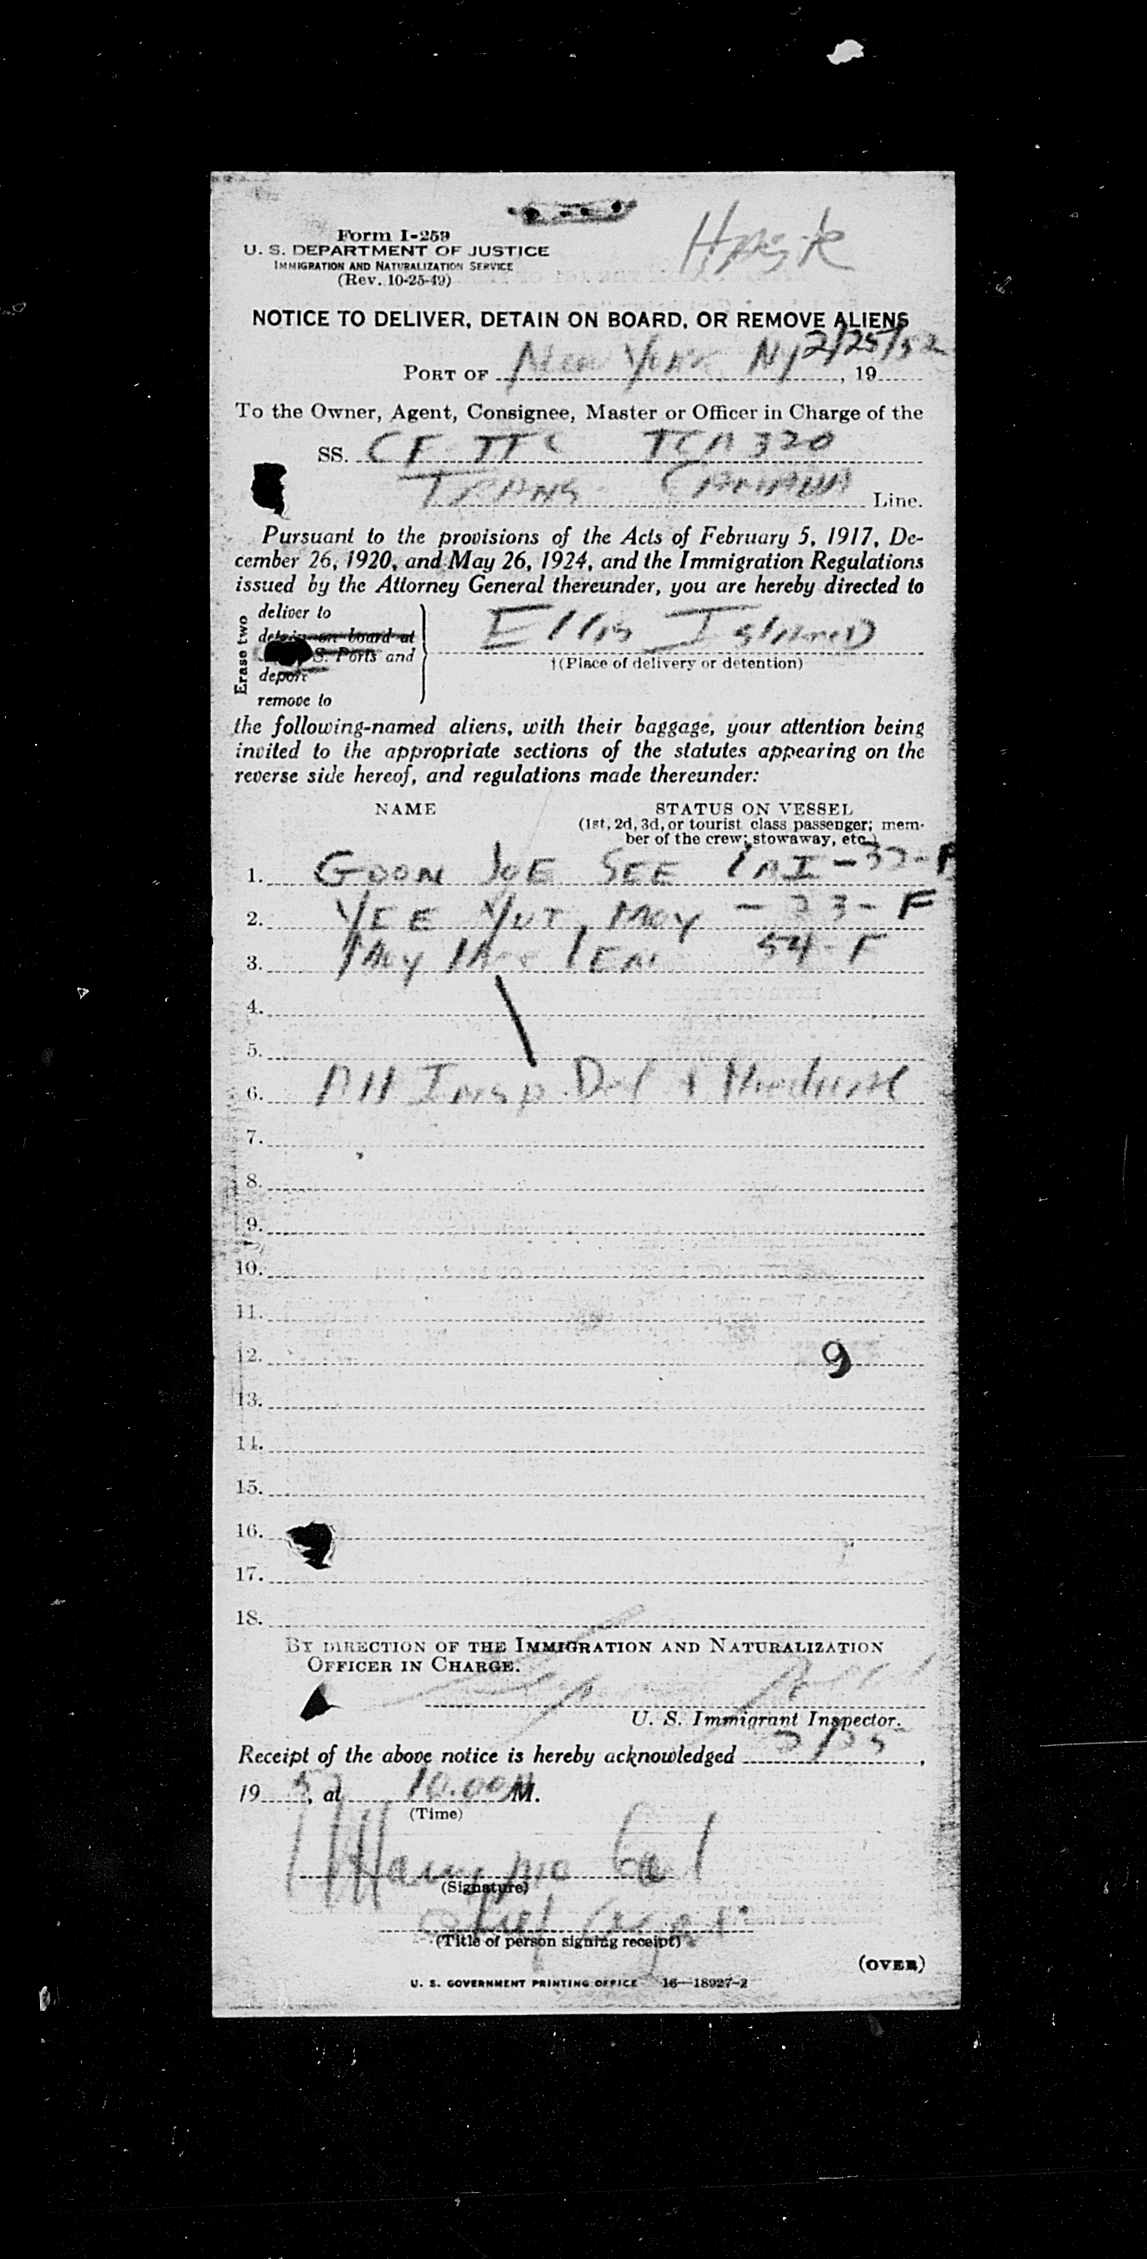 Form I-259
U. S. DEPARTMENT OF JUSTICE
IMMIGRATION AND NATURALIZATION SERVICE
(Rev. 10-25-49)
NOTICE TO DELIVER, DETAIN ON BOARD, OR REMOVE ALIENS
PORT OF New York NY 2/25/52, 19
To the Owner, Agent, Consignee, Master or Officer in Charge of the
SS. CF-TFC TCA 320
TRANS- CANADA Line.
Pursuant to the provisions of the Acts of February 5, 1917, De-
cember 26, 1920, and May 26, 1924, and the Immigration Regulations
issued by the Attorney General thereunder, you are hereby directed to
Erase two
deliver to
detain on board at
S. Ports and
deport
remove to
Ellis Island
†(Place of delivery or detention)
the following-named aliens, with their baggage, your attention being
invited to the appropriate sections of the statutes appearing on the
reverse side hereof, and regulations made thereunder:
NAME STATUS ON VESSEL
(1st, 2d, 3d, or tourist class passenger; mem-
ber of the crew; stowaway, etc.)
1. GOON SUE SEE
2. YEE YUT MOY - 23 - F
3. MOY 54 - F
4.
5.
6. All Insp Def & Medical
7.
8.
9.
10.
11.
12. 9
13.
14.
15.
16.
17.
18.
BY DIRECTION OF THE IMMIGRATION AND NATURALIZATION
OFFICER IN CHARGE.
U. S. Immigrant Inspector.
Receipt of the above notice is hereby acknowledged 2/25,
19 52, at 10.00 M.
(Time)
(Signature)
(Title of person signing receipt)
(OVER)
U. S. GOVERNMENT PRINTING OFFICE 16—18927-2